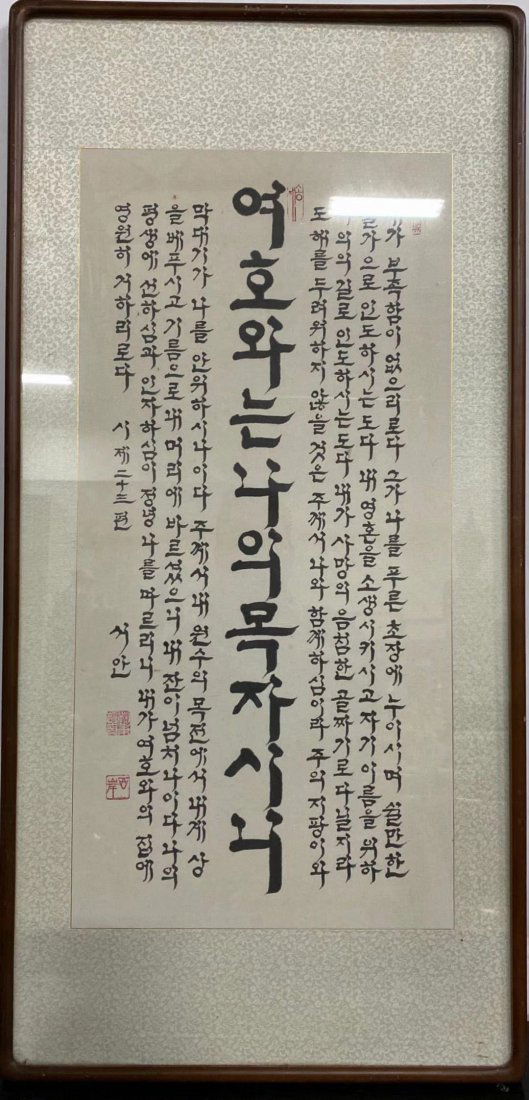 여호와는 나의 목자시니
내가 부족함이 없으리로다 그가 나를 푸른 초장에 누이시며 쉴만한
물가으로 인도하시는도다 내 영혼을 소생시키시고 자기 이름을 위하
의의 길로 인도하시는도다 내가 사망의 음침한 골짜기로 다닐지라
도 해를 두려워하지 않을 것은 주께서 나와 함께하심이라 주의 지팡이와
막대기가 나를 안위하시나이다 주께서 내 원수의 목전에서 내게 상
을 베푸시고 기름으로 내 머리에 바르셨으니 내 잔이 넘치나이다 나의
평생에 선하심과 인자하심이 정녕 나를 따르리니 내가 여호와의 집에
영원히 거하리로다 시 제二十三편 서안
西岸